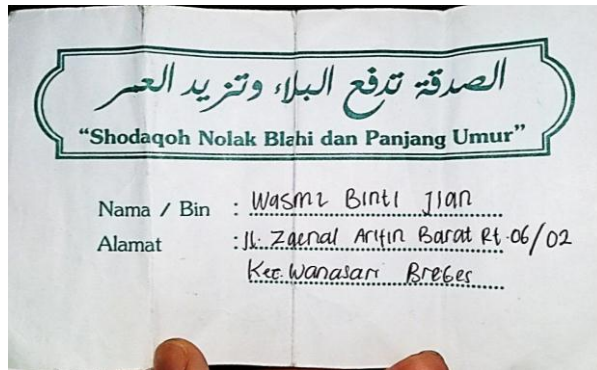 الصدقة تدفع البلاء وتزيد العمر
“Shodaqoh Nolak Blahi dan Panjang Umur”
Nama / Bin : Wasmi Binti Jian
Alamat : Jl. Zaenal Arifin Barat Rt. 06/02
Kec. Wanasari Brebes